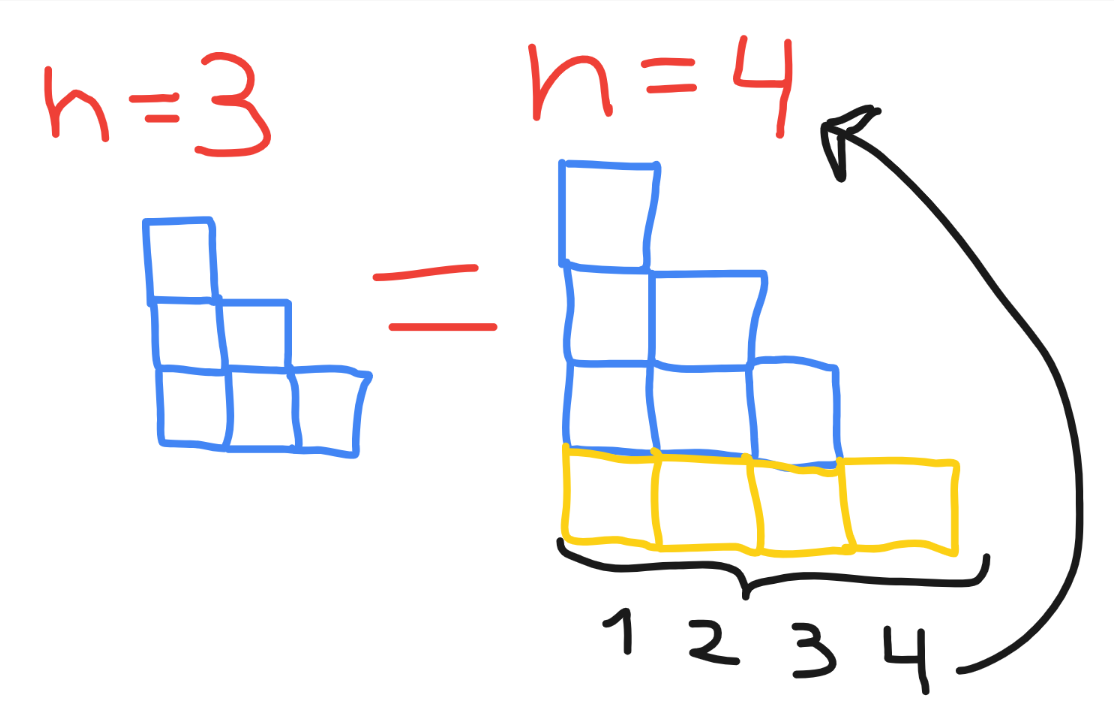 n=3
n=4
=
1 2 3 4